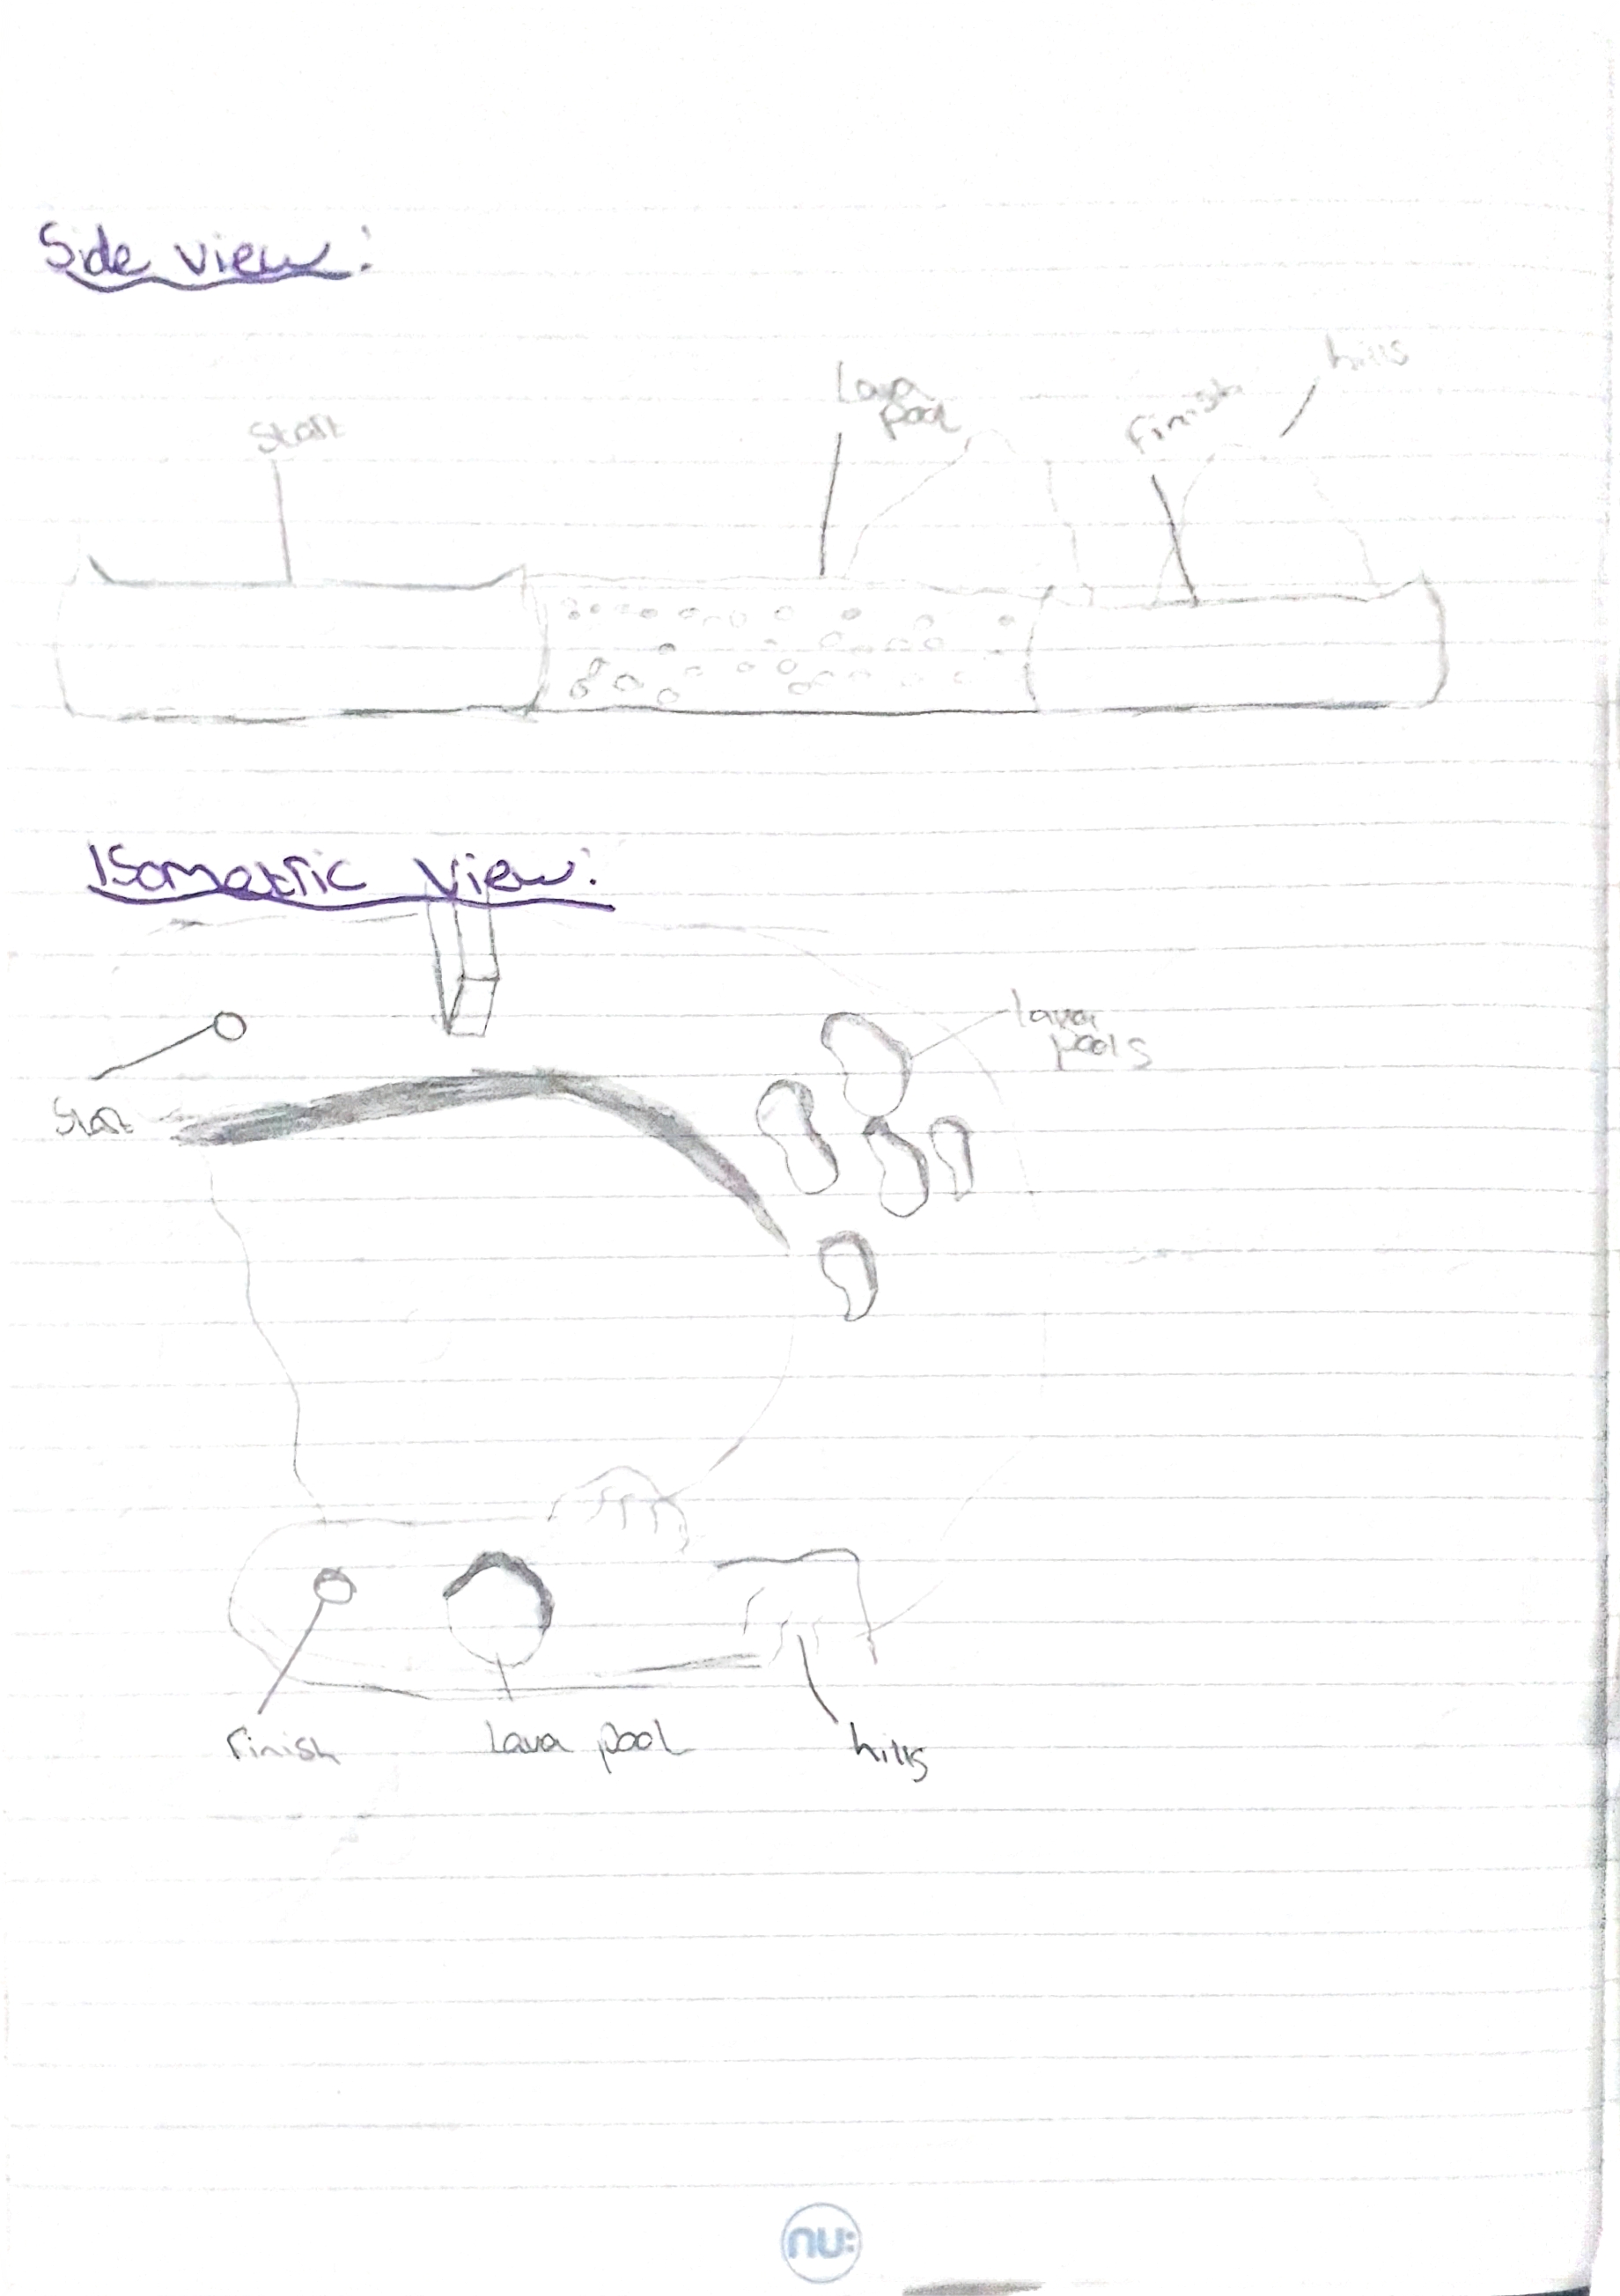 Side view:
Start
Lava
pool
Finish
hills
Isometric view:
Start
lava
pools
Finish
Lava pool
hills
nu: